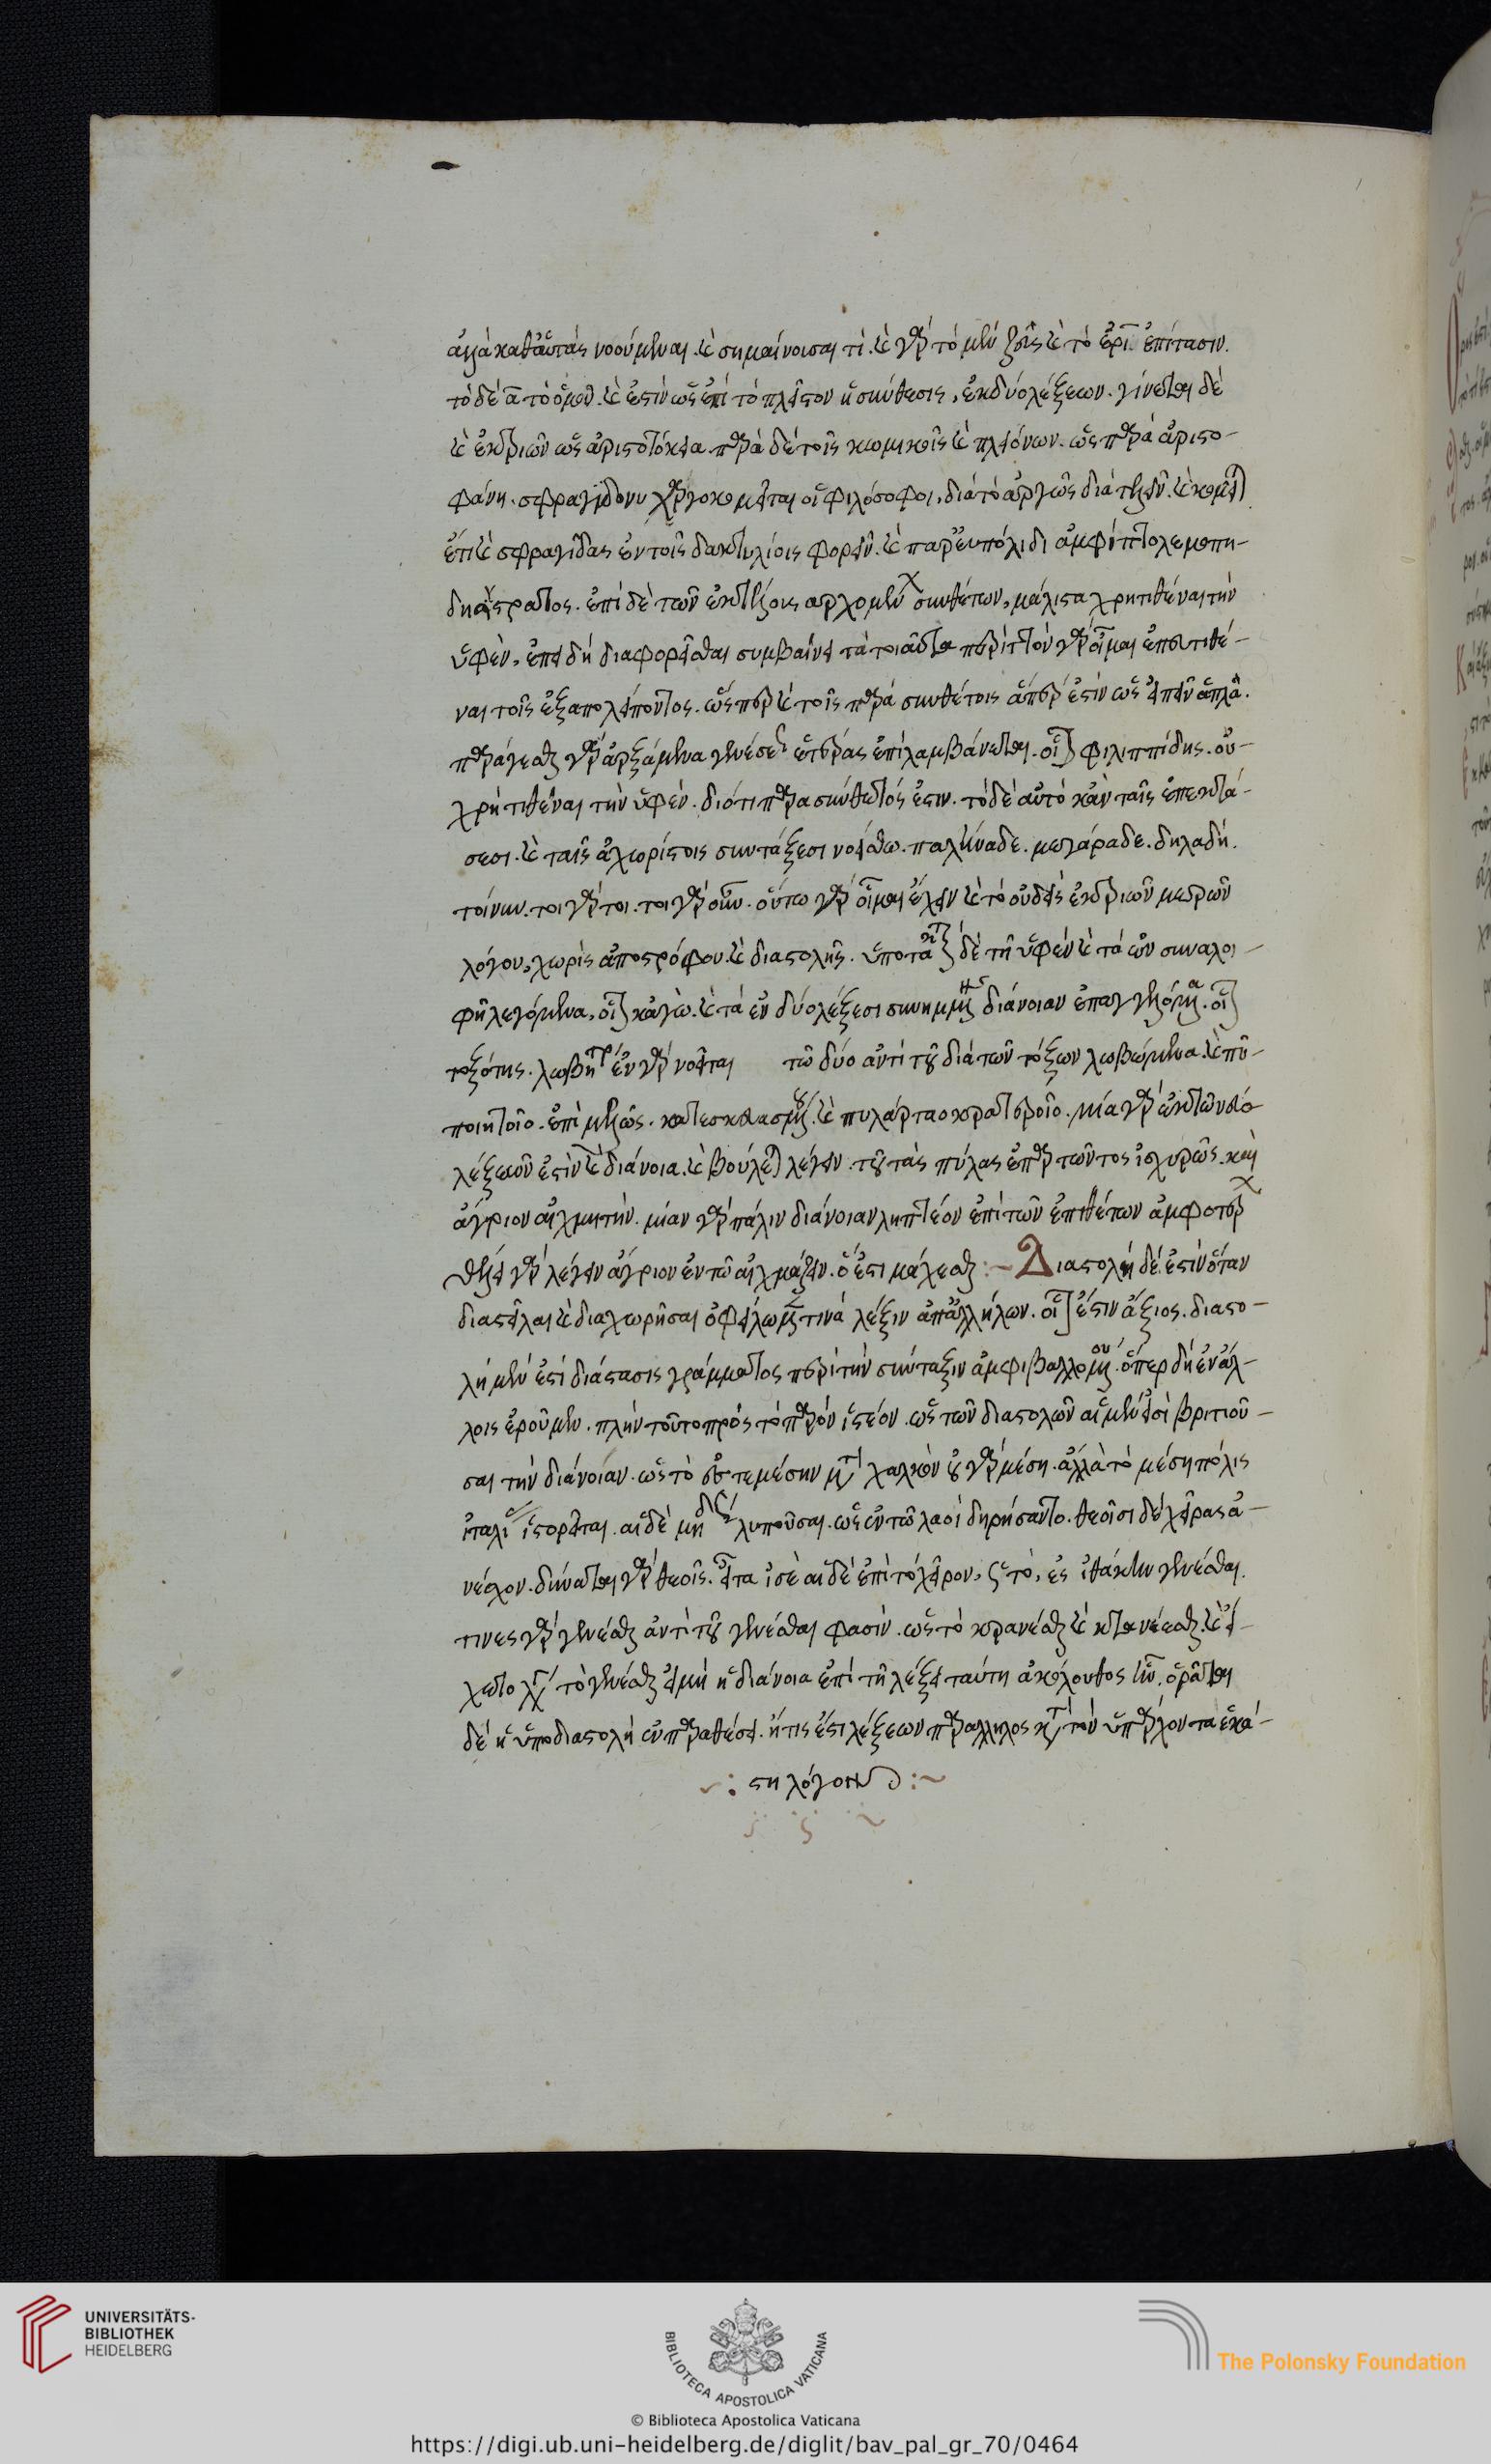 ἀλλὰ καθ' αὑτὰς νοούμεναι καὶ σημαίνουσαι τί. καὶ γὰρ τὸ μὲν καὶ τὸ ἐρι ἐπίτασιν.
τὸ δὲ α τὸ ὁμοῦ. καὶ ἔστιν ὡς ἐπὶ τὸ πλεῖστον ἡ σύνθεσις, ἐκ δύο λέξεων. γίνεται δὲ
καὶ ἐκ τριῶν ὡς ἀριστοτόκεια. παρὰ δὲ τοῖς κωμικοῖς καὶ πλειόνων. ὡς παρὰ ἀριστο-
φάνη. σφραγιδονυχαργοκομῆται οἱ φιλόσοφοι, διὰ τὸ ἀργῶς διατελεῖν. καὶ κομᾶν
ἔτι καὶ σφραγῖδας ἐν τοῖς δακτυλίοις φορεῖν. καὶ παρ' εὐπόλιδι ἀμφιπτολεμοπη-
δησίστρατος. ἐπὶ δὲ τῶν ἐκ τέλους ἀρχομένων συνθέτων, μάλιστα χρὴ τιθέναι τὴν
ὑφέν. ἐπειδὴ διαφορεῖσθαι συμβαίνει τὰ τοιαῦτα περιττὸν γὰρ οἶμαι ἐπεντιθέ-
ναι τοῖς ἐξ ἀπολείποντος. ὥσπερ καὶ τοῖς παρασυνθέτοις ἅπερ ἐστὶν ὡς εἰπεῖν ἁπλᾶ.
παράγεσθαι γὰρ ἀρξάμενα γενέσεως ἑτέρας ἐπιλαμβάνεται. οἷον φιλιππίδης. οὐ
χρὴ τιθέναι τὴν ὑφέν. διότι παρασύνθετός ἐστιν. τὸ δὲ αὐτὸ κἀν ταῖς ἐπεκτά-
σεσι. καὶ ταῖς ἀχωρίστοις συντάξεσι νοείσθω. παλλήναδε. μεγάραδε. δηλαδή.
τοίνυν. τοιγάρτοι. τοιγαροῦν. οὕτω γὰρ οἶμαι ἔχειν καὶ τὸ οὐδεὶς ἐκ τριῶν μερῶν
λόγου, χωρὶς ἀποστρόφου. καὶ διαστολῆς. ὑποτακτέον δὲ τῇ ὑφὲν καὶ τὰ ἐν συναλοι-
φῇ λεγόμενα, οἷον κἀγώ. καὶ τὰ ἐν δύο λέξεσι συνημμένης διάνοιαν ἐπαγγελλόμενα. οἷον
τοξότης. λωβητὴρ ἓν γὰρ νοεῖται τῶ δύο ἀντὶ τοῦ διὰ τῶν τόξων λωβώμενα. καὶ πύκα
ποιητοῖο. ἐπιμελῶς. κατεσκευασμένου. καὶ πυλάρταο κρατεροῖο. μία γὰρ ἐκ τῶν δύο
λέξεων ἐστὶν ἡ διάνοια. καὶ βούλεται λέγειν. τοῦ τὰς πύλας ἐπαρτῶντος ἰσχυρῶς. καὶ
ἄγριον αἰχμητήν. μίαν γὰρ πάλιν διάνοιαν ληπτέον ἐπὶ τῶν ἐπιθέτων ἀμφοτέρων
θέλει γὰρ λέγειν ἄγριον ἐν τῶ αἰχμάζειν. ὅ ἐστι μάχεσθαι :~ Διαστολὴ δέ ἐστιν ὅταν
διαστεῖλαι καὶ διαχωρῆσαι ὀφείλωμεν τινὰ λέξιν ἀπ' ἀλλήλων. οἷον ἔστιν ἄξιος. διαστο-
λὴ μέν ἐστι διάστασις γράμματος περὶ τὴν σύνταξιν ἀμφιβαλλομένου. ὅπερ δὴ ἐν ἄλ-
λοις ἐροῦμεν. πλὴν τοῦτο πρὸς τὸ παρὸν ἰστέον. ὡς τῶν διαστολῶν αἱ μέν εἰσι βριτιοῦ-
σαι τὴν διάνοιαν. ὡς τὸ ἔς τε μέσην μετὰ χαλκόν οὐ γὰρ μέση. ἀλλὰ τὸ μέση πόλις
ἰταλίας ἱστορεῖται. αἱ δὲ μὴ λυποῦσαι. ὡς ἐν τῶ λαοὶ δ' ἠρήσαντο. θεοῖσι δὲ χεῖρας ἀ-
νέσχον. δύναται γὰρ θεοῖς. εἶτα ἰσὲ αἱ δὲ ἐπὶ τὸ χεῖρον, ὡς τὸ, ἐς ἰθάκην γενέσθαι.
τινες γὰρ γενέσθαι ἀντὶ τοῦ γενέσθαι φασίν. ὡς τὸ κρανέεσθαι καὶ κτανέεσθαι. καὶ εἴ-
χετο τὸ γενέσθαι εἰ μὴ ἡ διάνοια ἐπὶ τῆ λέξει ταύτη ἀκόλουθος ἦν. ὁρᾶται
δὲ ἡ ὑποδιαστολὴ ἐν παραθέσει. ἥτις ἐστὶ λέξεων παράλληλος κατὰ τὸν ὑπάρχοντα ἑκά-
στη λόγον :~
UNIVERSITÄTS-
BIBLIOTHEK
HEIDELBERG
BIBLIOTECA APOSTOLICA VATICANA
The Polonsky Foundation
© Biblioteca Apostolica Vaticana
https://digi.ub.uni-heidelberg.de/diglit/bav_pal_gr_70/0464